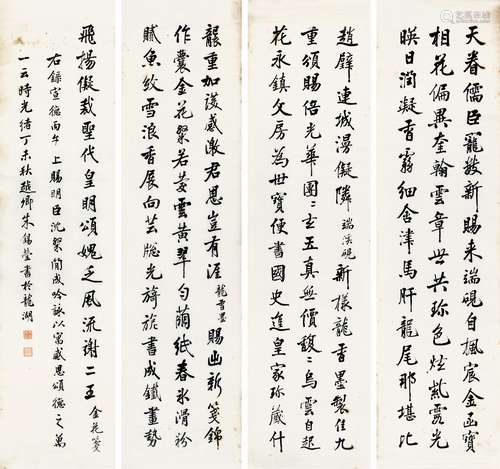 天眷儒臣寵數新賜来端硯自楓宸金函寶
相花偏異奎翰雲章世共珍色炫紫霞光
暎日潤凝香霧細含津馬肝龍尾那堪比
趙璧連城漫儗隣端溪硯新樣龍香墨製佳九
重頒賜倍光華團〻玄玉真無價靉〻烏雲自起
花永鎮文房為世寶便書國史進皇家珍藏什
襲重加護感激君恩豈有涯龍香墨賜出新箋錦
作囊金花燦若雲黄翠勻蘭紙春冰滑
膩魚紋雪浪香展向芸牕光旖旎書成鐵畫勢
飛揚儗裁聖代皇明頌媿乏風流謝二王金花箋
右錄宣德丙午上賜明臣沈粲簡成吟詠以寓感恩頌德之萬
一云時光緒丁未秋越鄉朱錫瑩書於龍湖